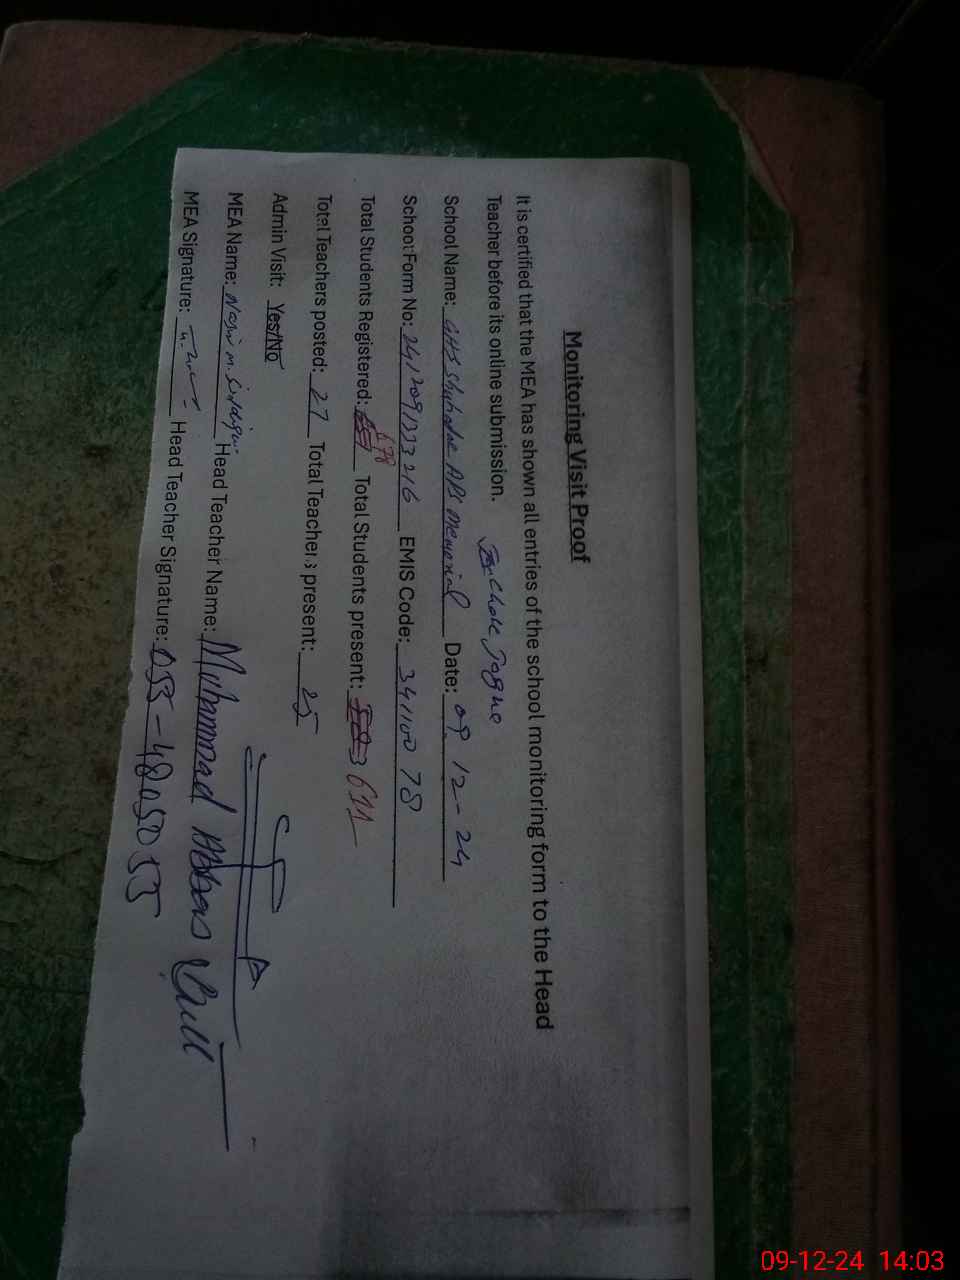 Monitoring Visit Proof
It is certified that the MEA has shown all entries of the school monitoring form to the Head
Teacher before its online submission.
School Name: GHS Shuhadae APS Memorial Date: 09. 12 - 24
School Form No: 241209133216 EMIS Code: 34110078
Total Students Registered: 678 Total Students present: 611
Total Teachers posted: 27 Total Teachers present: 25
Admin Visit: Yes/No
MEA Name: Head Teacher Name: Muhammad Abbas Butt
MEA Signature: Head Teacher Signature: 055-4805055
09-12-24 14:03